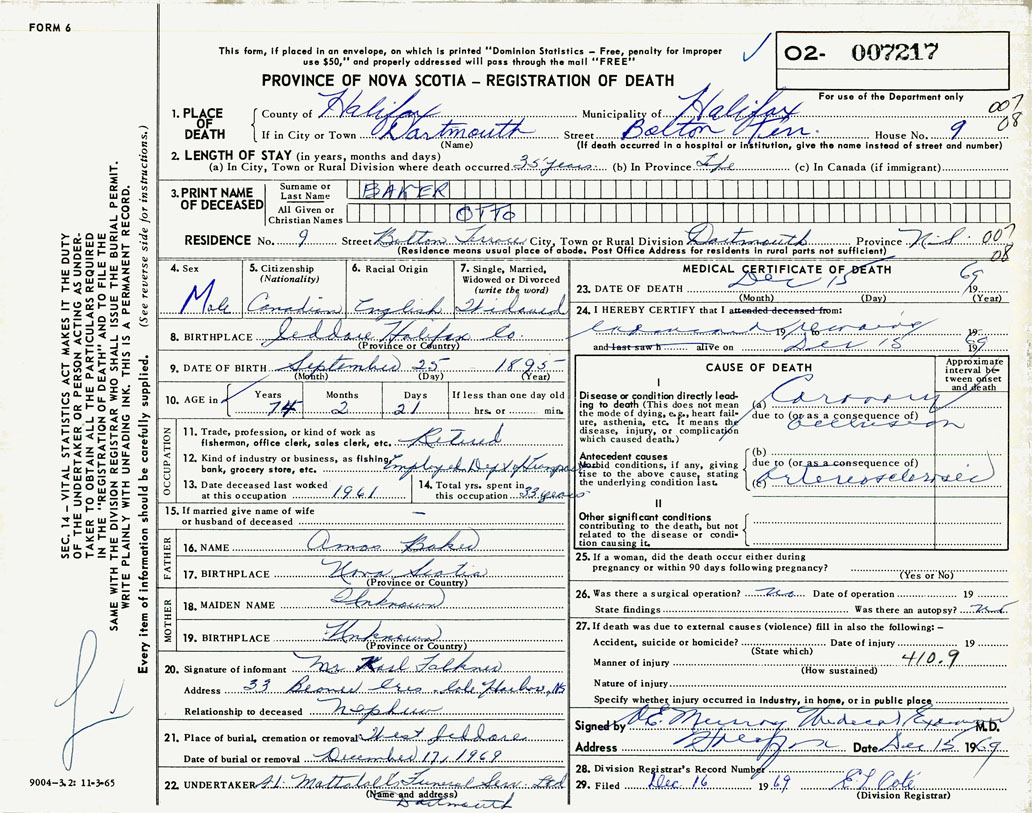 FORM 6
This form, if placed in an envelope, on which is printed "Dominion Statistics – Free, penalty for improper
use $50," and properly addressed will pass through the mail "FREE"
02- 007217
PROVINCE OF NOVA SCOTIA – REGISTRATION OF DEATH
For use of the Department only
1. PLACE OF DEATH
County of Halifax Municipality of Halifax 007
If in City or Town Dartmouth Street Bolton Terr. House No. 9 08
(Name) (If death occurred in a hospital or institution, give the name instead of street and number)
2. LENGTH OF STAY (in years, months and days)
(a) In City, Town or Rural Division where death occurred 35 years. (b) In Province Life (c) In Canada (if immigrant)
3. PRINT NAME OF DECEASED
Surname or Last Name BAKER
All Given or Christian Names OTTO
RESIDENCE No. 9 Street Bolton Terrace City, Town or Rural Division Dartmouth Province N.S. 007
(Residence means usual place of abode. Post Office Address for residents in rural parts not sufficient) 08
4. Sex
Male
5. Citizenship
(Nationality)
Canadian
6. Racial Origin
English
7. Single, Married,
Widowed or Divorced
(write the word)
Widowed
8. BIRTHPLACE Jeddore Halifax Co.
(Province or Country)
9. DATE OF BIRTH September 25 1895
(Month) (Day) (Year)
10. AGE in
Years Months Days If less than one day old
74 2 21 hrs. or min.
OCCUPATION
11. Trade, profession, or kind of work as
fisherman, office clerk, sales clerk, etc. Retired
12. Kind of industry or business, as fishing,
bank, grocery store, etc. Employed Dept of
13. Date deceased last worked
at this occupation 1961
14. Total yrs. spent in
this occupation 33 years
15. If married give name of wife
or husband of deceased –
FATHER
16. NAME Amos Baker
17. BIRTHPLACE Nova Scotia
(Province or Country)
MOTHER
18. MAIDEN NAME Unknown
19. BIRTHPLACE Unknown
(Province or Country)
20. Signature of informant Mr. Karl Falkner
Address 33 Cres. Cole Harbour, NS
Relationship to deceased nephew
21. Place of burial, cremation or removal West Jeddore
Date of burial or removal December 17, 1969
22. UNDERTAKER Mattatall Funeral Serv. Ltd
(Name and address)
Dartmouth
MEDICAL CERTIFICATE OF DEATH
23. DATE OF DEATH Dec 15 1969
(Month) (Day) (Year)
24. I HEREBY CERTIFY that I attended deceased from:
19 to 19
and last saw h alive on Dec 15 1969
CAUSE OF DEATH
Approximate
interval be-
tween onset
and death
I
Disease or condition directly lead-
ing to death (This does not mean
the mode of dying, e.g., heart fail-
ure, asthenia, etc. It means the
disease, injury, or complication
which caused death.)
(a) Coronary
due to (or as a consequence of)
occlusion
Antecedent causes
Morbid conditions, if any, giving
rise to the above cause, stating
the underlying condition last.
(b)
due to (or as a consequence of)
(c) Arteriosclerosis
II
Other significant conditions
contributing to the death, but not
related to the disease or condi-
tion causing it.
25. If a woman, did the death occur either during
pregnancy or within 90 days following pregnancy?
(Yes or No)
26. Was there a surgical operation? No Date of operation 19
State findings Was there an autopsy? No
27. If death was due to external causes (violence) fill in also the following: –
Accident, suicide or homicide? Date of injury 19
(State which)
Manner of injury 410.9
(How sustained)
Nature of injury
Specify whether injury occurred in industry, in home, or in public place
Signed by Murray Medical Examiner M.D.
Address Halifax Date Dec 15 1969
28. Division Registrar's Record Number
29. Filed Dec 16 1969 E L Cote
(Division Registrar)
SEC. 14 – VITAL STATISTICS ACT MAKES IT THE DUTY
OF THE UNDERTAKER OR PERSON ACTING AS UNDER-
TAKER TO OBTAIN ALL THE PARTICULARS REQUIRED
IN THE "REGISTRATION OF DEATH" AND TO FILE THE
SAME WITH THE DIVISION REGISTRAR WHO SHALL ISSUE THE BURIAL PERMIT.
WRITE PLAINLY WITH UNFADING INK. THIS IS A PERMANENT RECORD.
Every item of information should be carefully supplied. (See reverse side for instructions.)
9004–3.2: 11-3-65